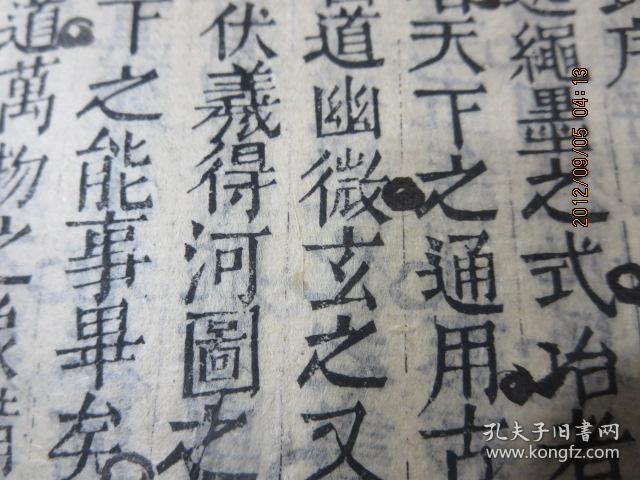 戶
繩墨之式冶者
天下之通用古
道幽微玄之又
伏羲得河圖之
下之能事畢矣
道萬物之象備
2012/09/05 04:13
孔夫子旧书网
kongfz.com